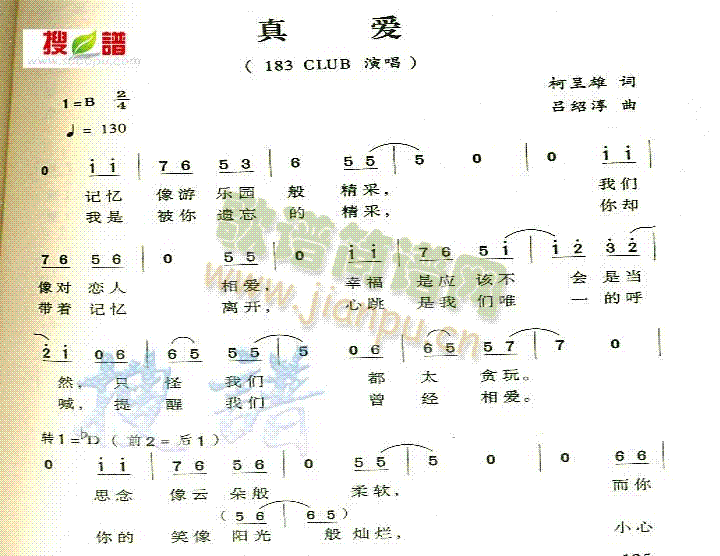 搜谱
www.sooopu.com
真 爱
( 183 CLUB 演唱 )
柯呈雄 词
1=B 2/4
吕绍淳 曲
♩= 130
0 i i | 7 6 5 3 | 6 5 5 | 5 0 | 0 i i |
记忆 像游 乐园 般 精采, 我们
我是 被你 遗忘 的 精采, 你却
7 6 5 6 | 0 5 5 | 0 i i | 7 6 5 i | i 2 3 2 |
像对 恋人 相爱, 幸福 是应 该不 会 是当
带着 记忆 离开, 心跳 是我 们唯 一 的呼
2 i 0 6 | 6 5 5 5 | 5 0 6 | 6 5 5 7 | 7 0 |
然, 只 怪 我们 都 太 贪玩。
喊, 提 醒 我们 曾 经 相爱。
转1=bD ( 前2=后1 )
0 i i | 7 6 5 6 | 0 5 5 | 5 0 | 0 6 6 |
思念 像云 朵般 柔软, 而你
( 5 6 5 6 )
你的 笑像 阳光 般 灿烂, 小心
歌谱简谱网
www.jianpu.cn
搜谱